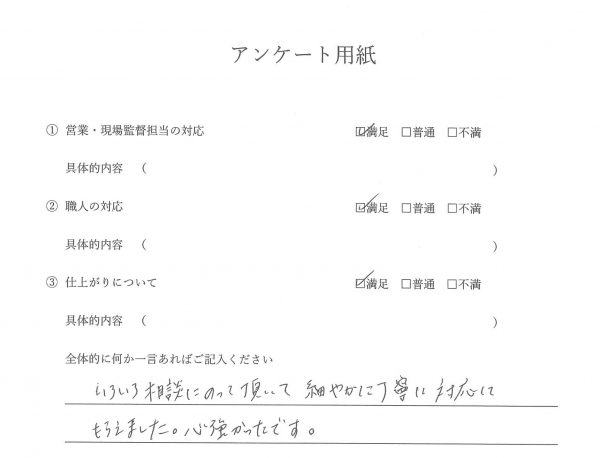 アンケート用紙
① 営業・現場監督担当の対応 ☑満足 □普通 □不満
具体的内容 （ ）
② 職人の対応 ☑満足 □普通 □不満
具体的内容 （ ）
③ 仕上がりについて ☑満足 □普通 □不満
具体的内容 （ ）
全体的に何か一言あればご記入ください
いろいろ相談にのって頂いて 細やかに丁寧に対応して
もらえました。心強かったです。